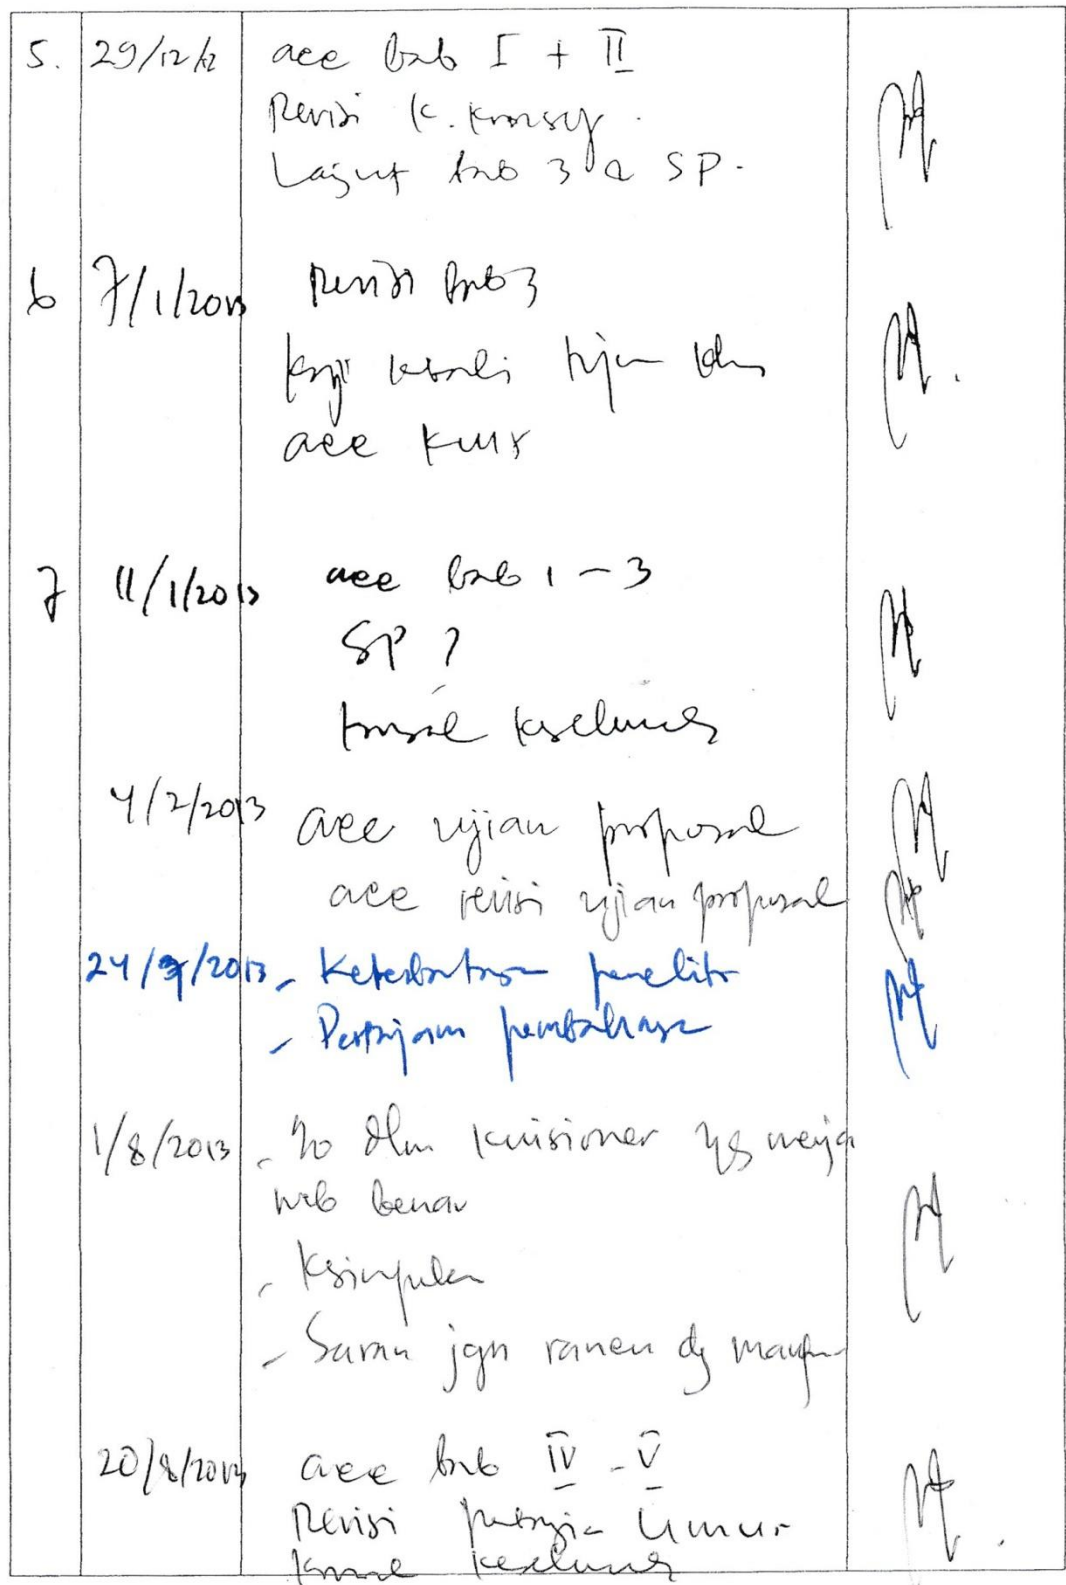 5. 29/12/12 acc bab I + II
Revisi K. Konsep.
Lanjut bab 3 & SP.
6 7/1/2013 Revisi bab 3
kaji kembali tujuan khs
acc kuis
7 11/1/2013 acc bab 1 - 3
SP ?
konsul keseluruh
4/2/2013 acc ujian proposal
acc revisi ujian proposal
24/7/2013 - Keterbatasan penelit
- Pertajam pembahasa
1/8/2013 - % dlm kuisioner yg menja
wab benar
- Ksimpulan
- Saran jgn rancu dg
20/8/2013 acc bab IV - V
Revisi Umur
konsul keseluruh